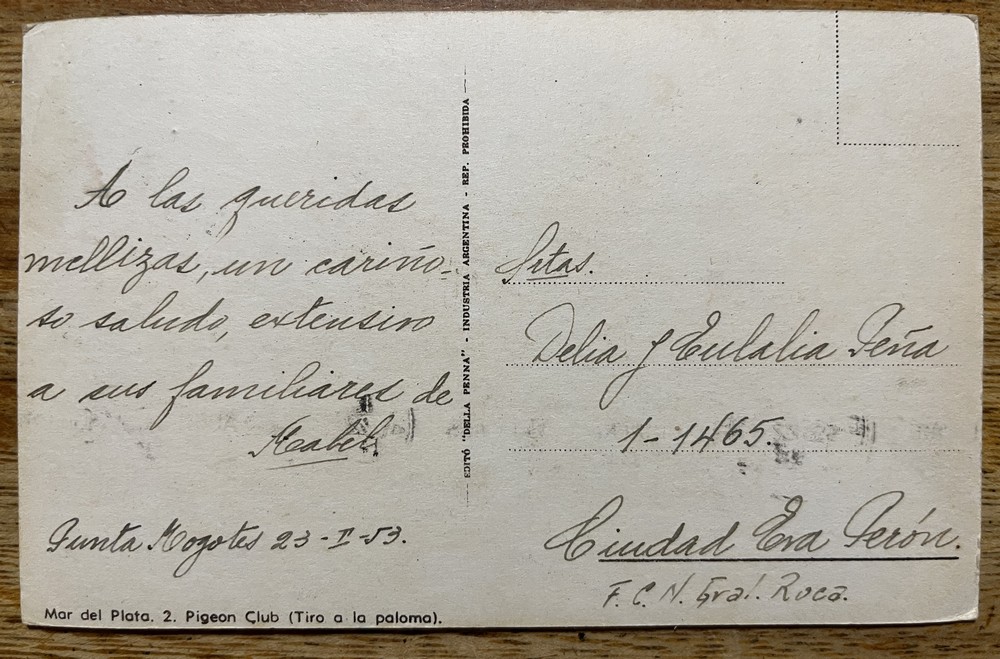 A las queridas
mellizas, un cariño-
so saludo, extensivo
a sus familiares de
Mabel
Punta Mogotes 23-I-53.
Mar del Plata. 2. Pigeon Club (Tiro a la paloma).
EDITÓ "DELLA PENNA" - INDUSTRIA ARGENTINA - REP. PROHIBIDA
Srtas.
Delia y Eulalia Peña
1-1465.
Ciudad Eva Perón.
F.C.N. Gral. Roca.